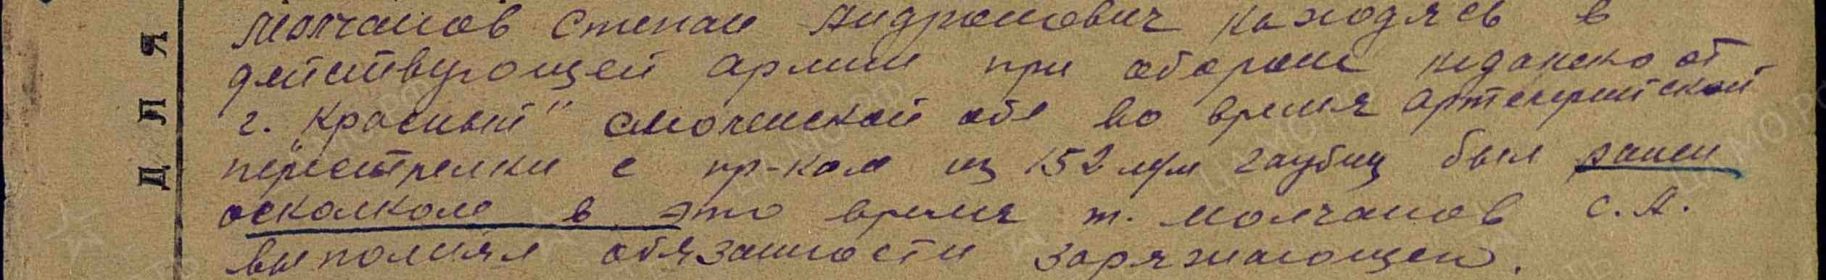 Молчанов Степан Андронович находясь в
действующей армии при обороне недалеко от
г. Красный" смоленской обл во время артелерийской
перестрелки с пр-ком из 152 м/м гаубиц был ранен
осколком в это время т. Молчанов С.А.
выполнял обязанности заряжающего.
ДЛЯ